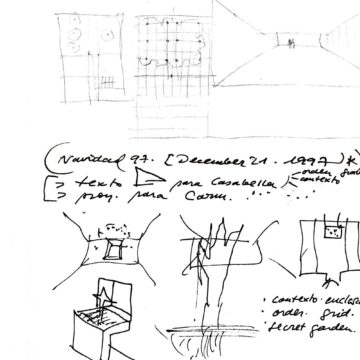 (Navidad 97. [December 21. 1997)
→ texto para Casabella orden
contexto
→ proy. para
. contexto. enclos
. orden. grid.
. secret garden.